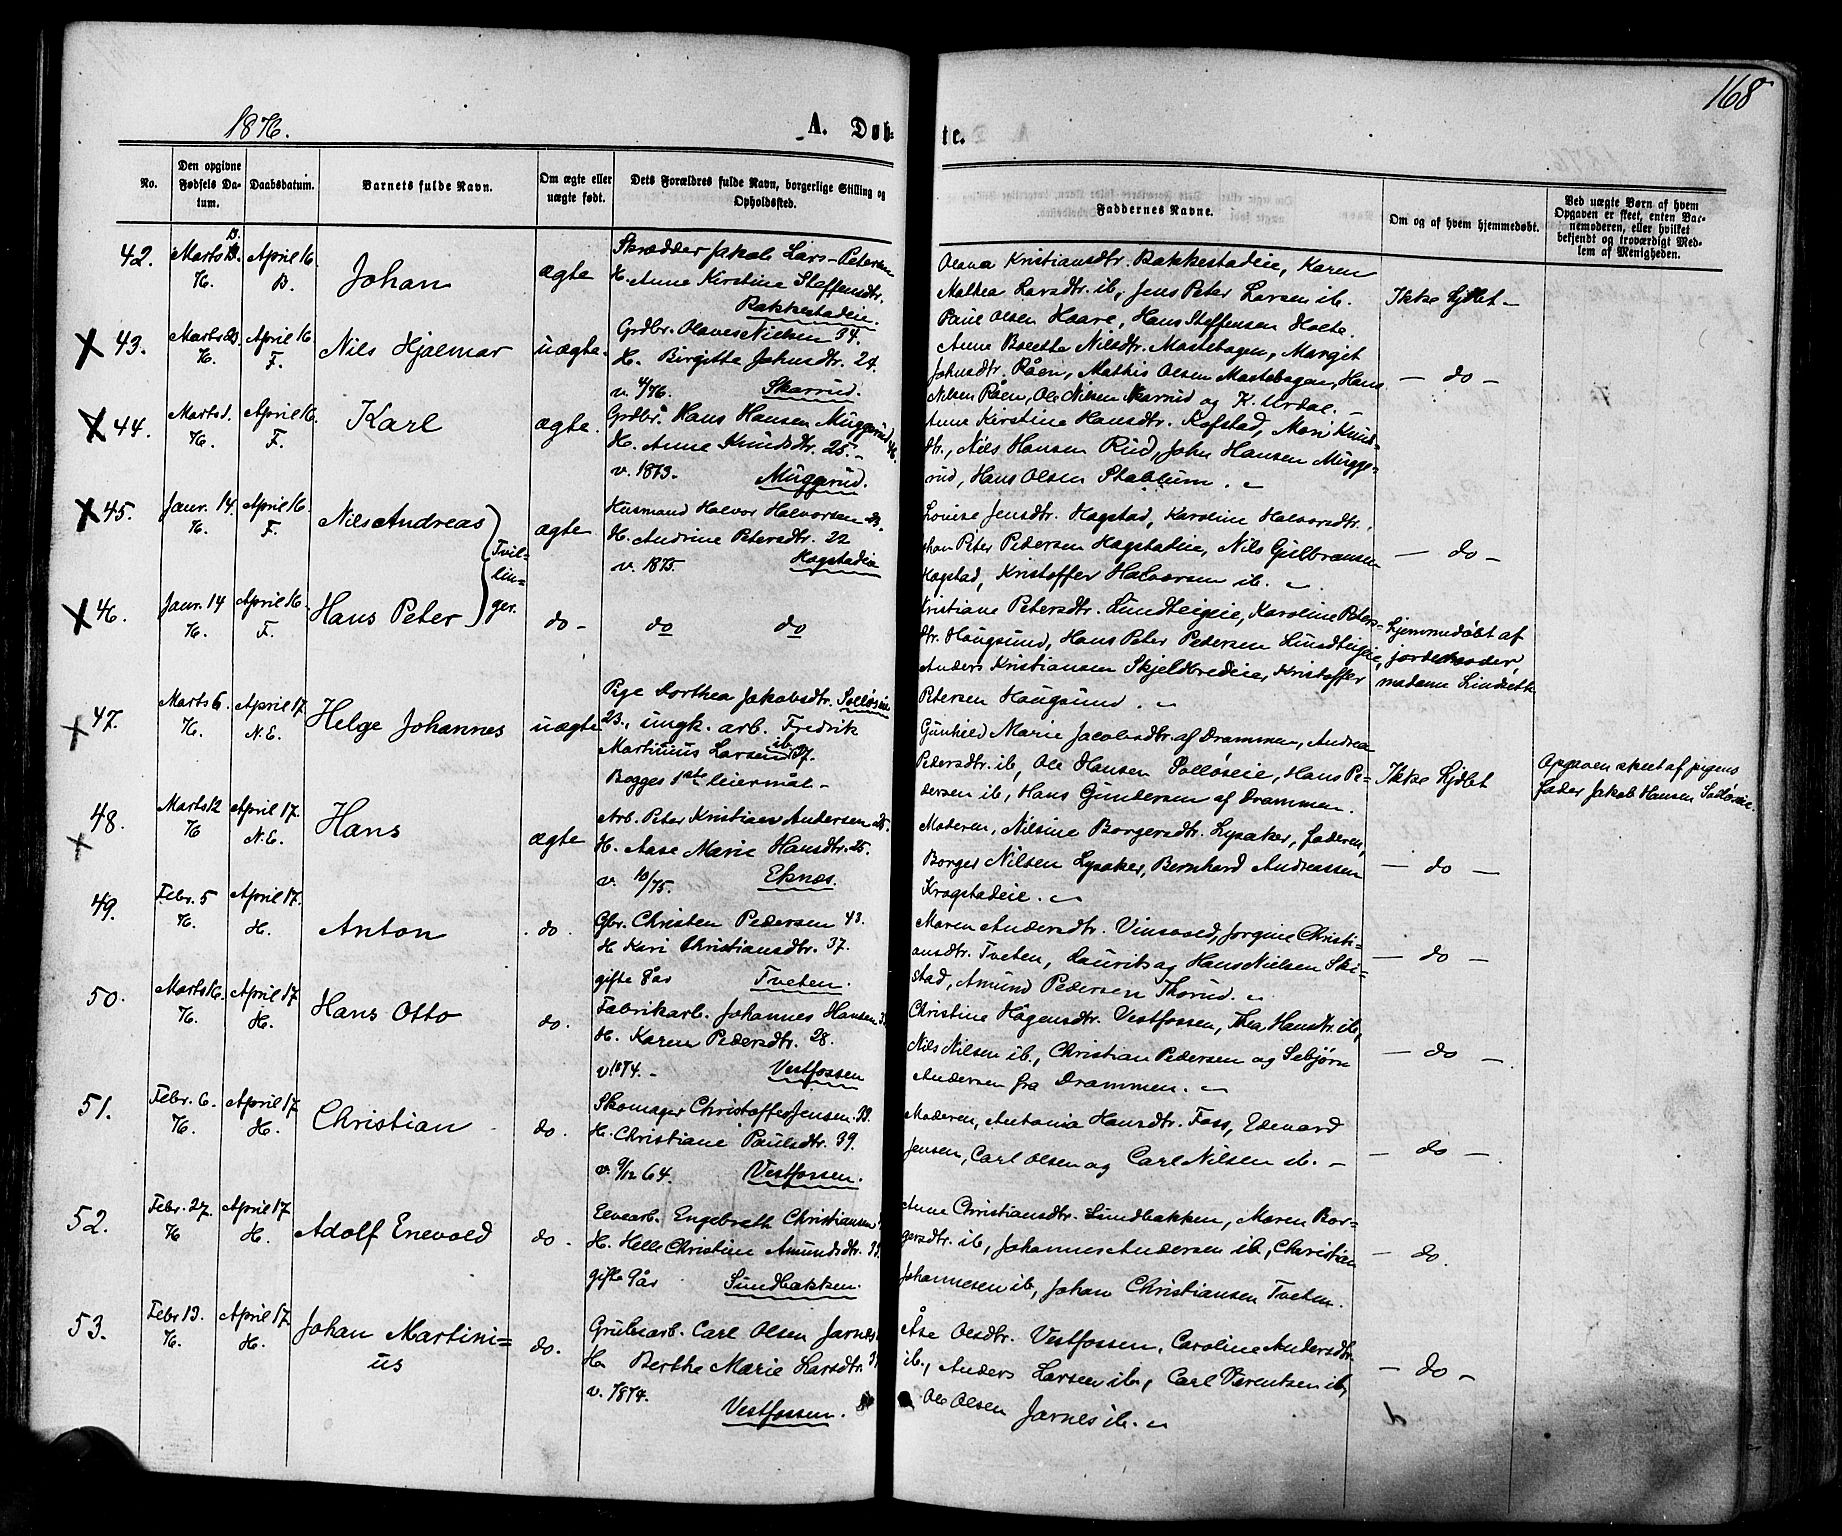 168
1876.
A. Døb-
te.
No.
Den opgivne Fødsels Datum.
Daabsdatum.
Barnets fulde Navn.
Om ægte eller uægte født.
Dets Forældres fulde Navn, borgerlige Stilling og Opholdssted.
Faddernes Navne.
Om og af hvem hjemmedøbt.
Ved uægte Børn af hvem Opgaven er skeet, enten Barnemoderen, eller hvilket bekjendt og troværdigt Medlem af Menigheden.
42.
April 16.
Johan
ægte
Skrædder Jakob Lars-Petersen
H. Anne Kirstine Staffensdtr.
Bakkestadeie.
Olava Kristiansdtr. Bakkestadeie, Karen
Mathea Larsdtr. ib, Jens Peter Larsen ib.
Paul Olsen Haare, Hans Steffensen Holte.
Ikke hjdbt -
X 43.
April 16
F.
Nils Hjalmar
uægte.
Grdbr. Olaves Nielsen 34.
H. Birgitte Johnsdtr. 24.
v. 4/76. Skarrud.
Anne Bolette Nilsdtr. Mastebogen, Margit
Johnsdtr. Råen, Mathis Olsen Mastebogen, Hans
Nilsen Råen, Ole Nilsen Skarrud og K. Urdal. -
- do -
X 44.
Marts 1.
H.
April 16.
F.
Karl
ægte.
Grdbr. Hans Hansen Muggerud
H. Anne Knudsdtr. 25.-
v. 1873. Muggerud.
Anne Kirstine Hansdtr. Kofstad, Mari Knuds-
dtr., Nils Hansen Rud, John Hansen Mugge-
rud, Hans Olsen Stablum.
X 45.
Janr. 14.
H.
April 16.
F.
Nils Andreas
Tvil-
lin-
ger.
ægte
Husmand Halvor Halvorsen
H. Andrine Petersdtr. 22
v. 1875. Hagstadeie
Louise Jensdtr. Hagstad, Karoline Halvorsdtr.
Johan Peter Pedersen Hagstadeie, Nils Gulbransen
Hagstad, Kristoffer Halvorsen ib.
- do -
X 46.
Janr. 14
H.
April 16.
F.
Hans Peter
do -
do do
Kristiane Petersdtr. Lundteigeie, Karoline Peters-
dtr. Haugsund, Hans Peter Pedersen Lundteigeie,
Anders Kristiansen Skjeldbredeie, Kristoffer
Petersen Haugsund.
Hjemmedøbt af
jordemoder,
madame
X 47.
Marts 6.
H.
April 17.
N.E.
Helge Johannes
uægte
Pige Dorthea Jakobsdtr. Solløseie
23., ungk. arb. Fredrik
Martinius Larsen ib. 27.
Begges 1ste leiermål-
Gunhild Marie Jacobsdtr. af Drammen, Andrea
Pedersdtr. ib, Ole Hansen Solløseie, Hans Pe-
dersen ib, Hans Gundersen af Drammen.
Ikke hjdbt
Opgaven skeet af pigens
fader Jakob Hansen Solløseie.
X 48.
Marts 12
H
April 17.
N.E.
Hans
ægte
Arb. Peter Kristian Andersen 25.
H. Aase Marie Hansdtr. 25.
v. 10/75. Eknes.
Moderen, Nilsine Borgersdtr. Lysaker, faderen,
Borger Nilsen Lysaker, Bernhard Andreassen
Kragstadeie.
- do -
49.
Febr. 5
H.
April 17.
H.
Anton
do.
Gbr. Christen Pedersen 43.
H. Kari Christiansdtr. 37.
gifte 8 år Tveten.
Maren Andersdtr. Vinsvold, Jorgine Christi-
ansdtr. Tveten, Laurits og Hans Nielsen Ski-
stad, Amund Pedersen Thorud.
- do -
50.
Marts 16.
H.
April 17
H.
Hans Otto
do.
Fabrikarb. Johannes Hansen
H. Karen Pedersdtr. 28.
v 1874. - Vestfossen
Christine Hågensdtr. Vestfossen, Thea Hansdtr. ib,
Nils Nilsen ib., Christian Pedersen og Sebjørn
Andersen fra Drammen.
- do -
51.
Febr. 6.
H.
April 17
H.
Christian
do.
Skomager Christoffer Jensen
H. Christiane Paulsdtr. 39.
v. 9/12 64. Vestfossen.
Moderen, Antonia Hansdtr. Foss, Edevard
Jensen, Carl Olsen og Carl Nilsen ib. -
- do -
52.
Febr. 27.
H
April 17.
H.
Adolf Enevold
do.
Elvearb. Engebreth Christiansen
H. Helle Christine Amundsdtr.
gifte 9 år Sundbakken.
Anne Christiansdtr. Sundbakken, Maren Bor-
gersdtr. ib, Johannes Andersen ib, Christian
Johannesen ib, Johan Christiansen Tveten.
- do.
53.
Febr 13.
H.
April 17
H.
Johan Martini-
us
do.
Grubearb. Carl Olsen Jarnes
H. Berthe Marie Larsdtr.
v. 1874.
Vestfossen.
Åse Olsdtr. Vestfossen, Caroline Andersdtr.
ib., Anders Larsen ib., Carl Berentsen ib,
Ole Olsen Jarnes ib.
- do -